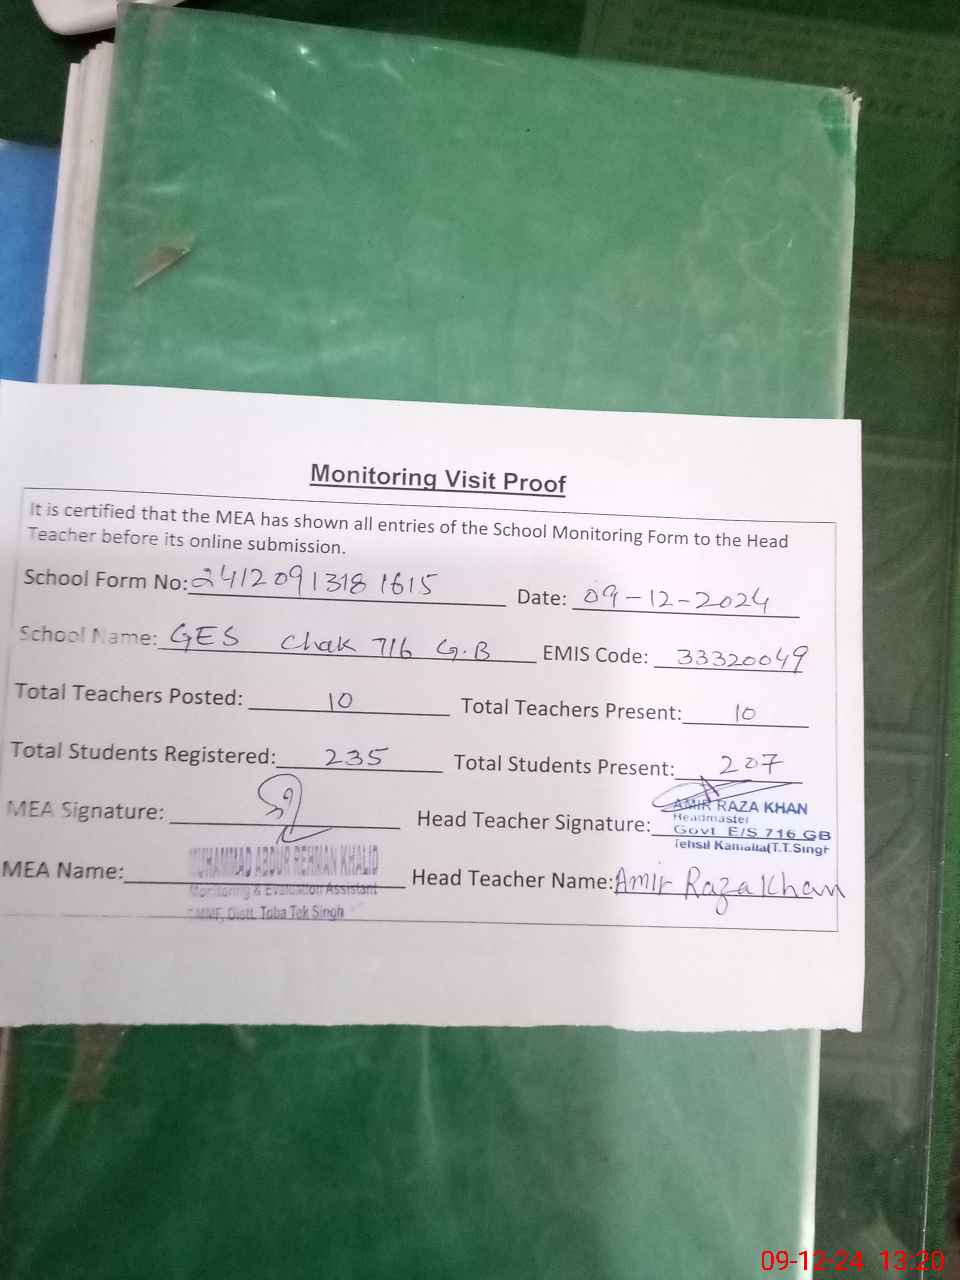 Monitoring Visit Proof
It is certified that the MEA has shown all entries of the School Monitoring Form to the Head
Teacher before its online submission.
School Form No: 2412091318 1615 Date: 09-12-2024
School Name: GES Chak 716 G.B EMIS Code: 33320049
Total Teachers Posted: 10 Total Teachers Present: 10
Total Students Registered: 235 Total Students Present: 207
MEA Signature: Head Teacher Signature:
AMIR RAZA KHAN
Headmaster
Govt E/S 716 GB
Tehsil Kamalia(T.T.Singh
MEA Name: Head Teacher Name: Amir Raza Khan
MUHAMMAD ABDUR REHMAN KHALID
Monitoring & Evaluation Assistant
Distt. Toba Tek Singh
09-12-24 13:20